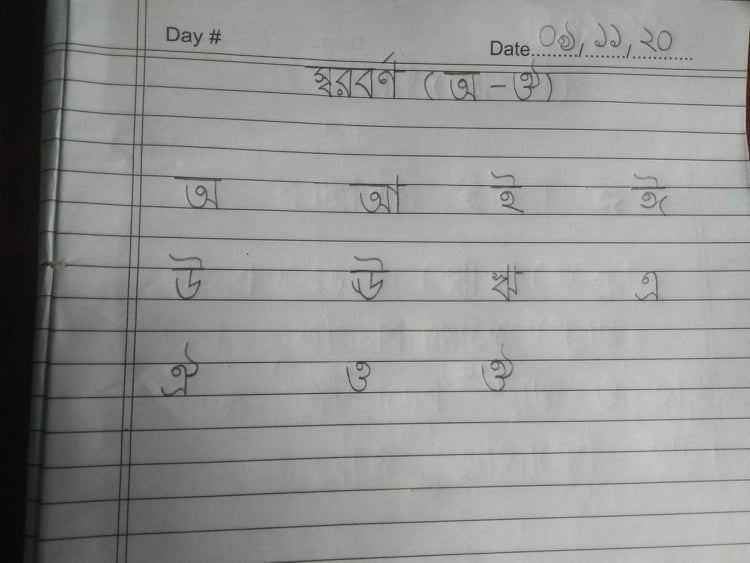 Day #
Date ০৯,১১,২০
স্বরবর্ণ (অ - ঔ)
অ আ ই ঈ
উ ঊ ঋ এ
ঐ ও ঔ